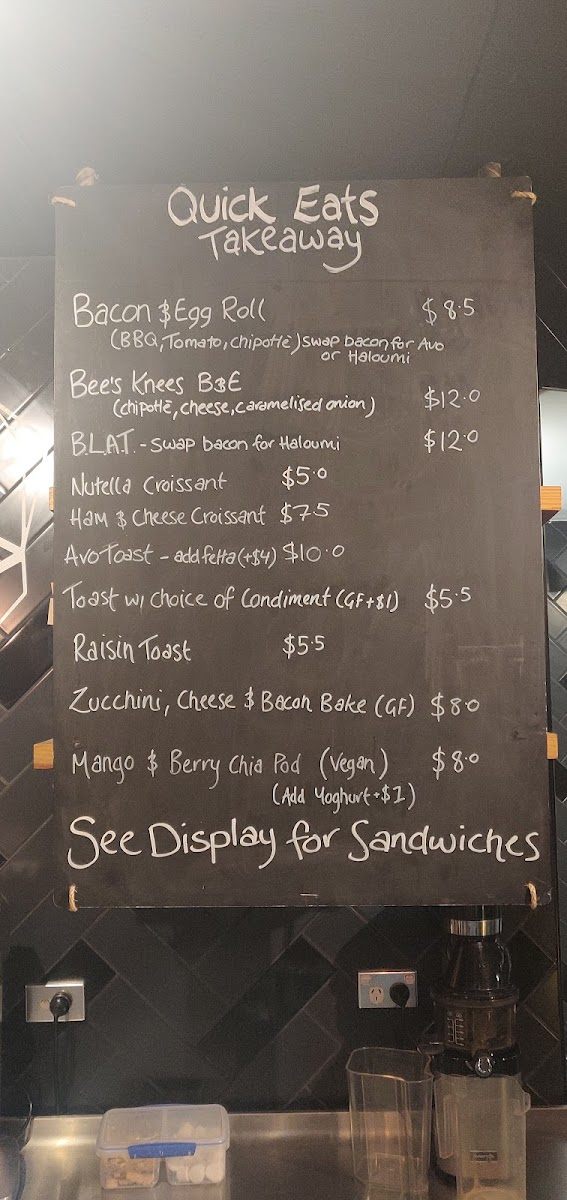 Quick Eats
Takeaway
Bacon & Egg Roll $8.5
(BBQ, Tomato, chipotle) swap bacon for Avo
or Haloumi
Bee's Knees B&E $12.0
(chipotle, cheese, caramelised onion)
B.L.A.T. - swap bacon for Haloumi $12.0
Nutella Croissant $5.0
Ham & Cheese Croissant $7.5
Avo Toast - add fetta (+$4) $10.0
Toast w/ choice of Condiment (GF+$1) $5.5
Raisin Toast $5.5
Zucchini, Cheese & Bacon Bake (GF) $8.0
Mango & Berry Chia Pod (Vegan) $8.0
(Add Yoghurt +$1)
See Display for Sandwiches